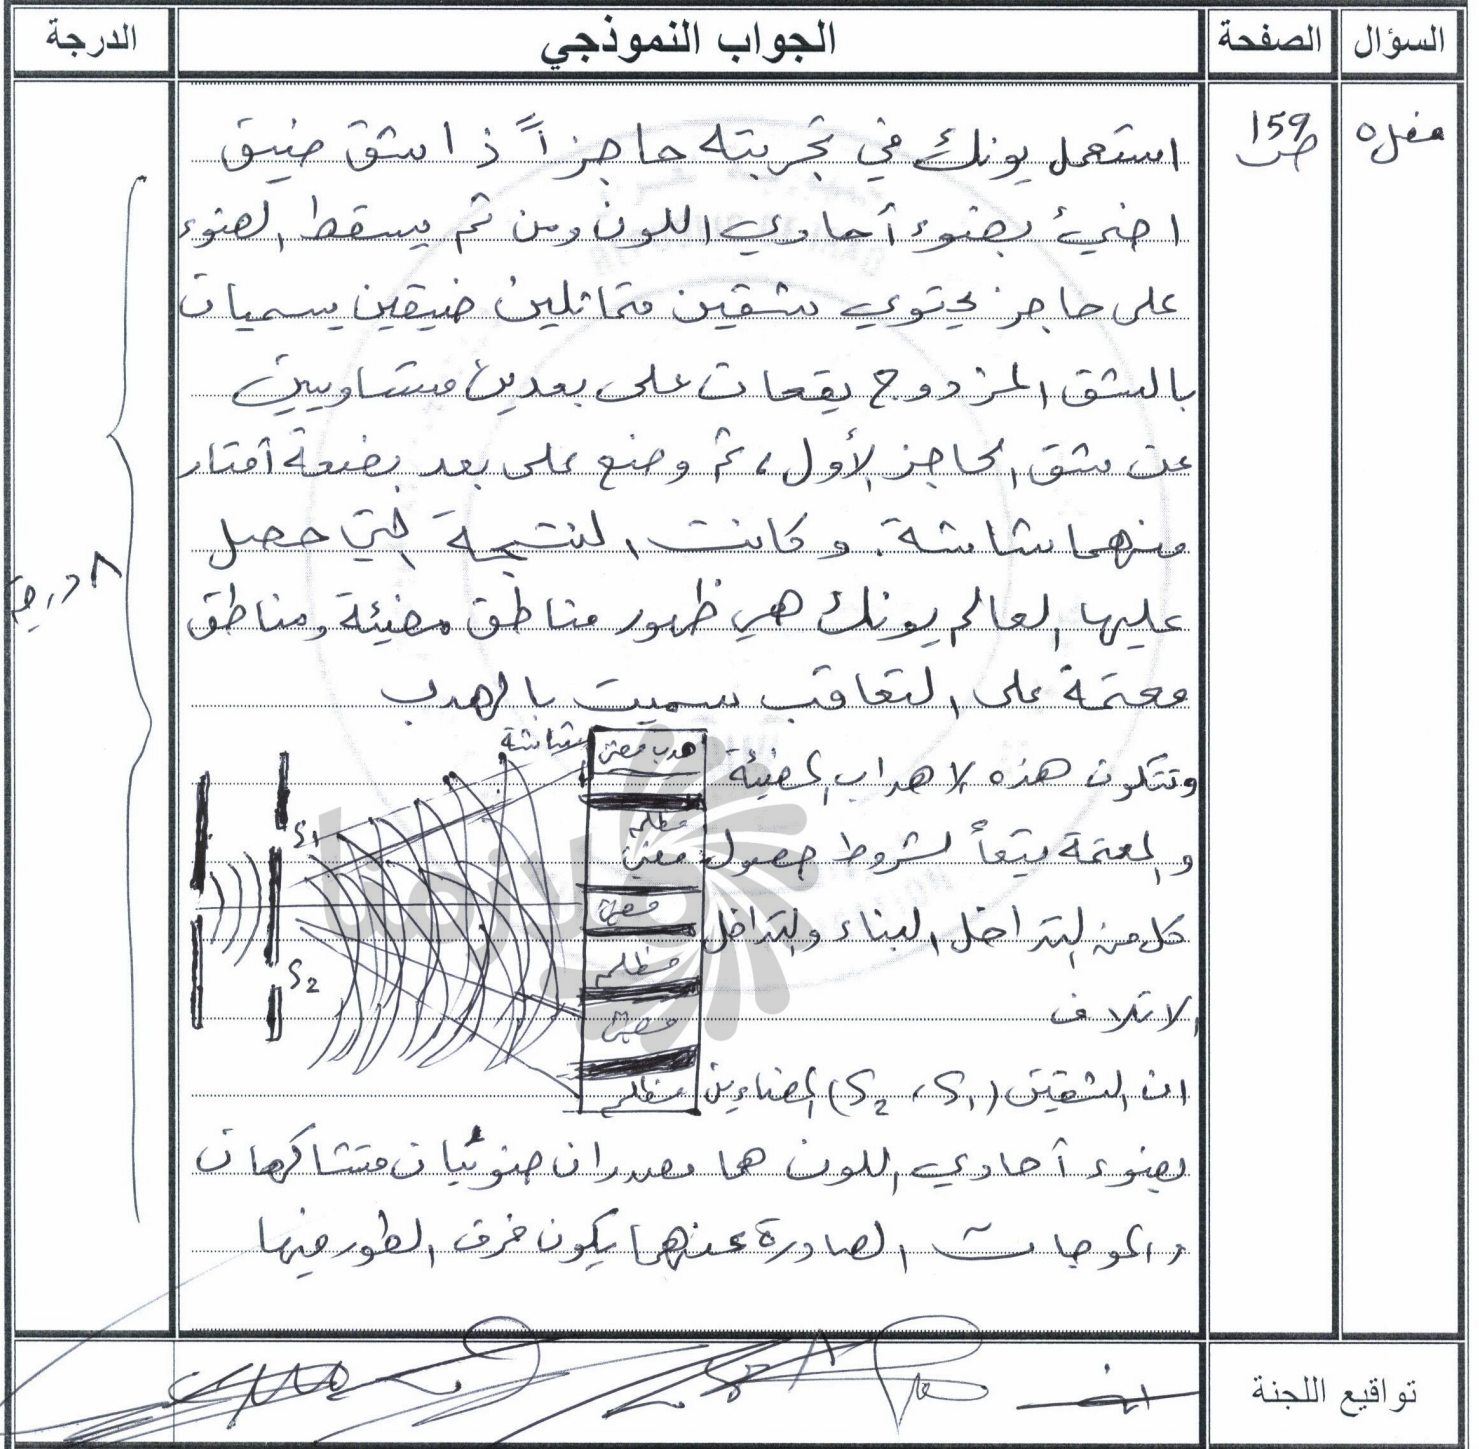 السؤال الصفحة الجواب النموذجي الدرجة
فصل٥ ص159
استعمل يونك في تجربته حاجزاً ذا شق ضيق
اضيئ بضوء أحادي اللون ومن ثم يسقط الضوء
على حاجز يحتوي شقين متماثلين ضيقين يسميان
بالشق المزدوج يقعان على بعدين متساويين
عن شق الحاجز الأول، ثم وضع على بعد بضعة أمتار
منهما شاشة. وكانت النتيجة التي حصل
عليها العالم يونك هي ظهور مناطق مضيئة ومناطق
معتمة على التعاقب سميت بالهدب
٨ درجة
وتتكون هذه الاهداب المضيئة
والمعتمة تبعاً لشروط حصول
كل من التداخل البناء والتداخل
الاتلاف
شاشة
هدب مضئ
مظلم
مضئ
مضئ
مظلم
مضئ
مظلم
S1
S2
ان الشقين (S1، S2) المضاءين
بضوء أحادي اللون هما مصدران ضوئيان متشاكهان
والموجات الصادرة عنهما يكون فرق الطور فيها
تواقيع اللجنة
ملازمنا